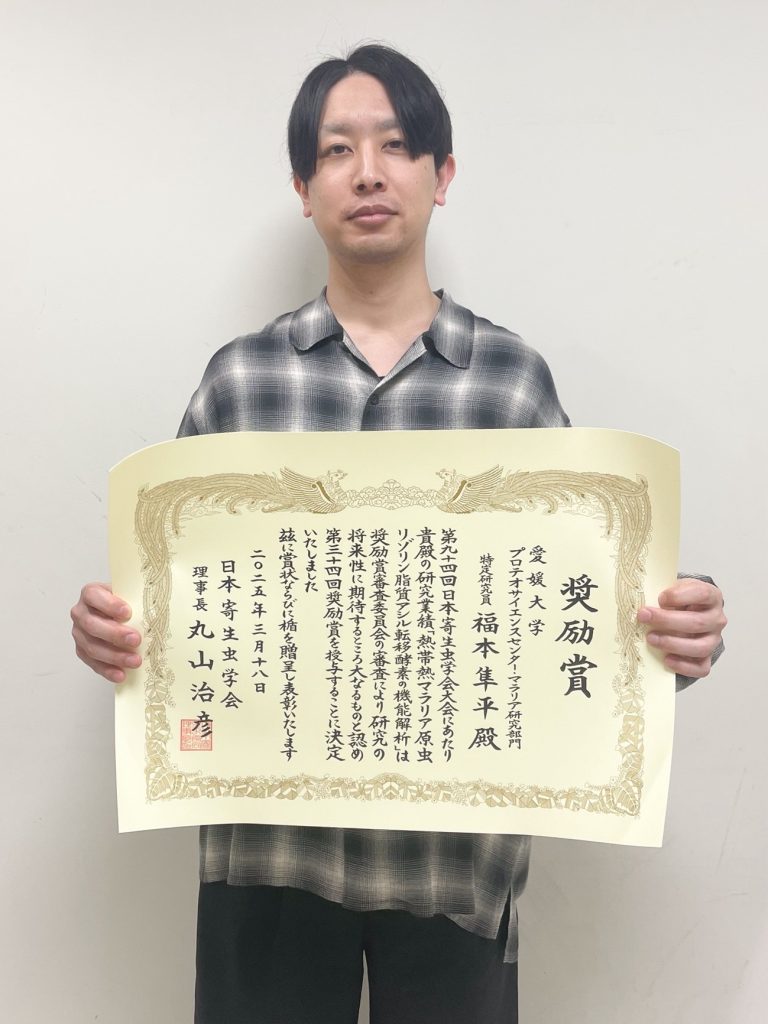 奨励賞
愛媛大学
プロテオサイエンスセンター・マラリア研究部門
特定研究員 福本隼平殿
第九十四回日本寄生虫学会大会にあたり
貴殿の研究業績「熱帯熱マラリア原虫
リゾリン脂質アシル転移酵素の機能解析」は
奨励賞審査委員会の審査により研究の
将来性に期待するところ大なるものと認め
第三十四回奨励賞を授与することに決定
いたしました
茲に賞状ならびに楯を贈呈し表彰いたします
二〇二五年三月十八日
日本寄生虫学会
理事長 丸山治彦